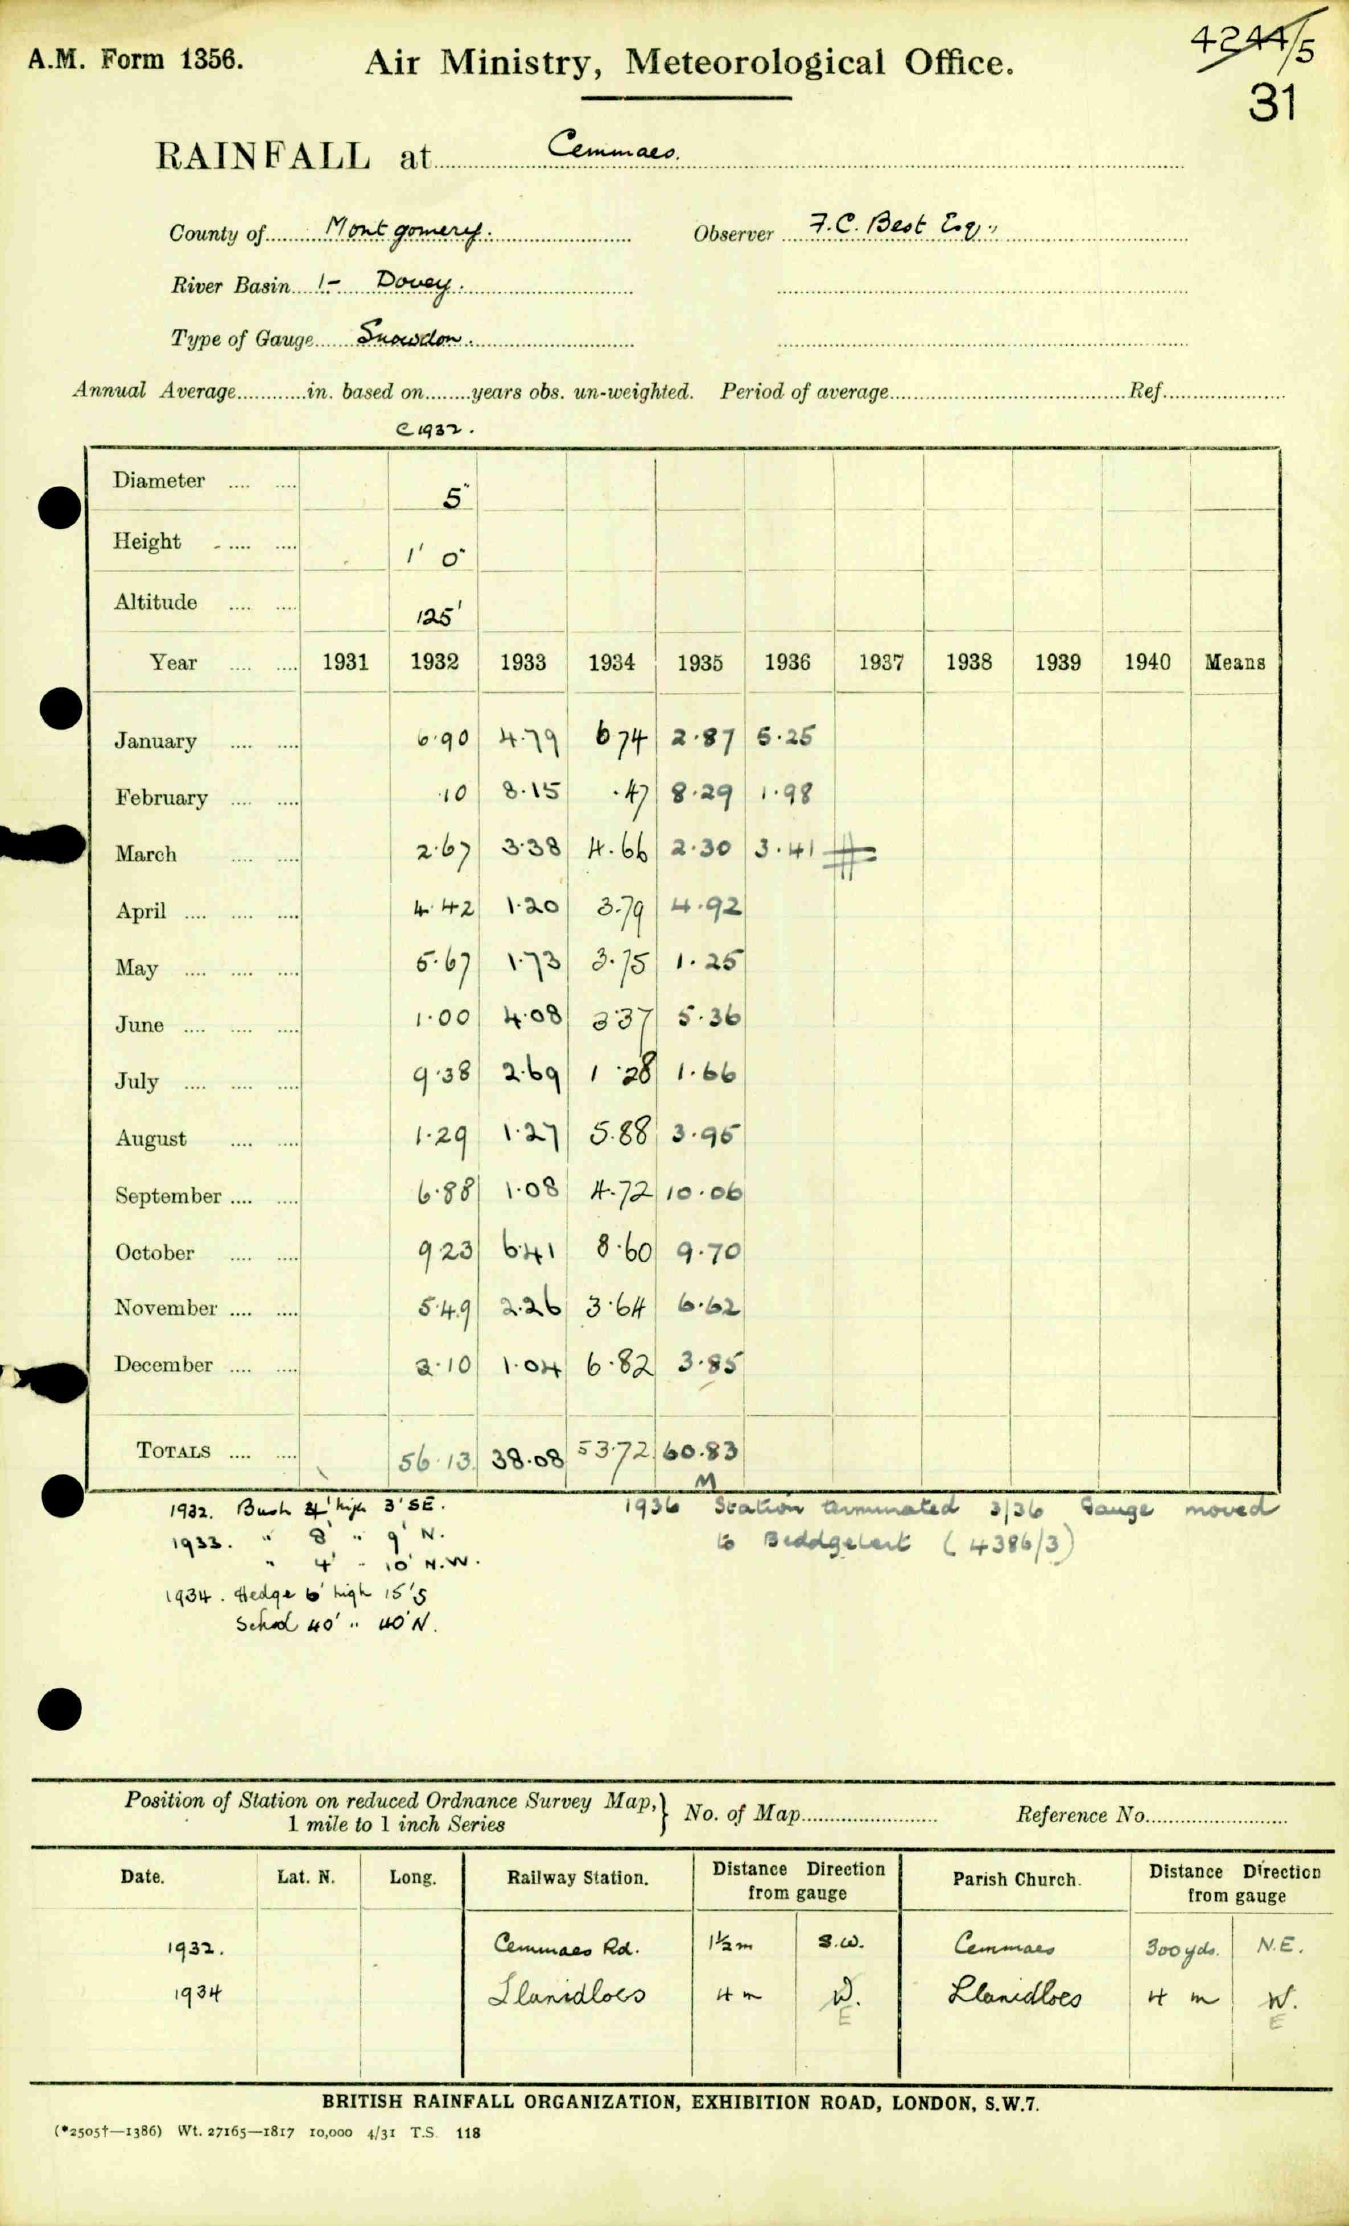 A.M. Form 1356. Air Ministry, Meteorological Office. 4244/5
31
RAINFALL at Cemmaes.
County of Montgomery. Observer F.C. Best Esq.
River Basin 1- Dovey.
Type of Gauge Snowdon.
Annual Average in. based on years obs. un-weighted. Period of average Ref.
C 1932.
Diameter 5"
Height 1' 0"
Altitude 125'
Year 1931 1932 1933 1934 1935 1936 1937 1938 1939 1940 Means
January 6.90 4.79 6 74 2.87 5.25
February .10 8.15 .47 8.29 1.98
March 2.67 3.38 4.66 2.30 3.41
April 4.42 1.20 3.79 4.92
May 5.67 1.73 3.75 1.25
June 1.00 4.08 3 37 5.36
July 9.38 2.69 1.28 1.66
August 1.29 1.27 5.88 3.95
September 6.88 1.08 4.72 10.06
October 9 23 6.41 8.60 9.70
November 5.49 2.26 3.64 6.62
December 3.10 1.04 6.82 3.85
TOTALS 56.13 38.08 53.72 60.83
M
1932. Bush 4' high 3' SE. 1936 Station terminated 3/36 Gauge moved
1933. " 8' " 9' N. to Beddgelert (4386/3)
" 4' " 10' N.W.
1934. Hedge 6' high 15' S
School 40' " 40' N.
Position of Station on reduced Ordnance Survey Map, 1 mile to 1 inch Series } No. of Map Reference No.
Date. Lat. N. Long. Railway Station. Distance Direction from gauge Parish Church. Distance Direction from gauge
1932. Cemmaes Rd. 1½ m S.W. Cemmaes 300 yds. N.E.
1934 Llanidloes 4 m W. Llanidloes 4 m W.
E E
BRITISH RAINFALL ORGANIZATION, EXHIBITION ROAD, LONDON, S.W.7.
(*2505†—1386) Wt. 27165—1817 10,000 4/31 T.S. 118